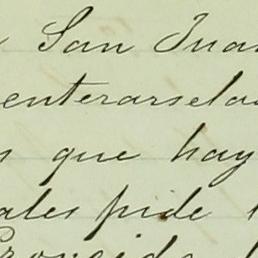 San Juan
enterarse la
que hay
ales pide